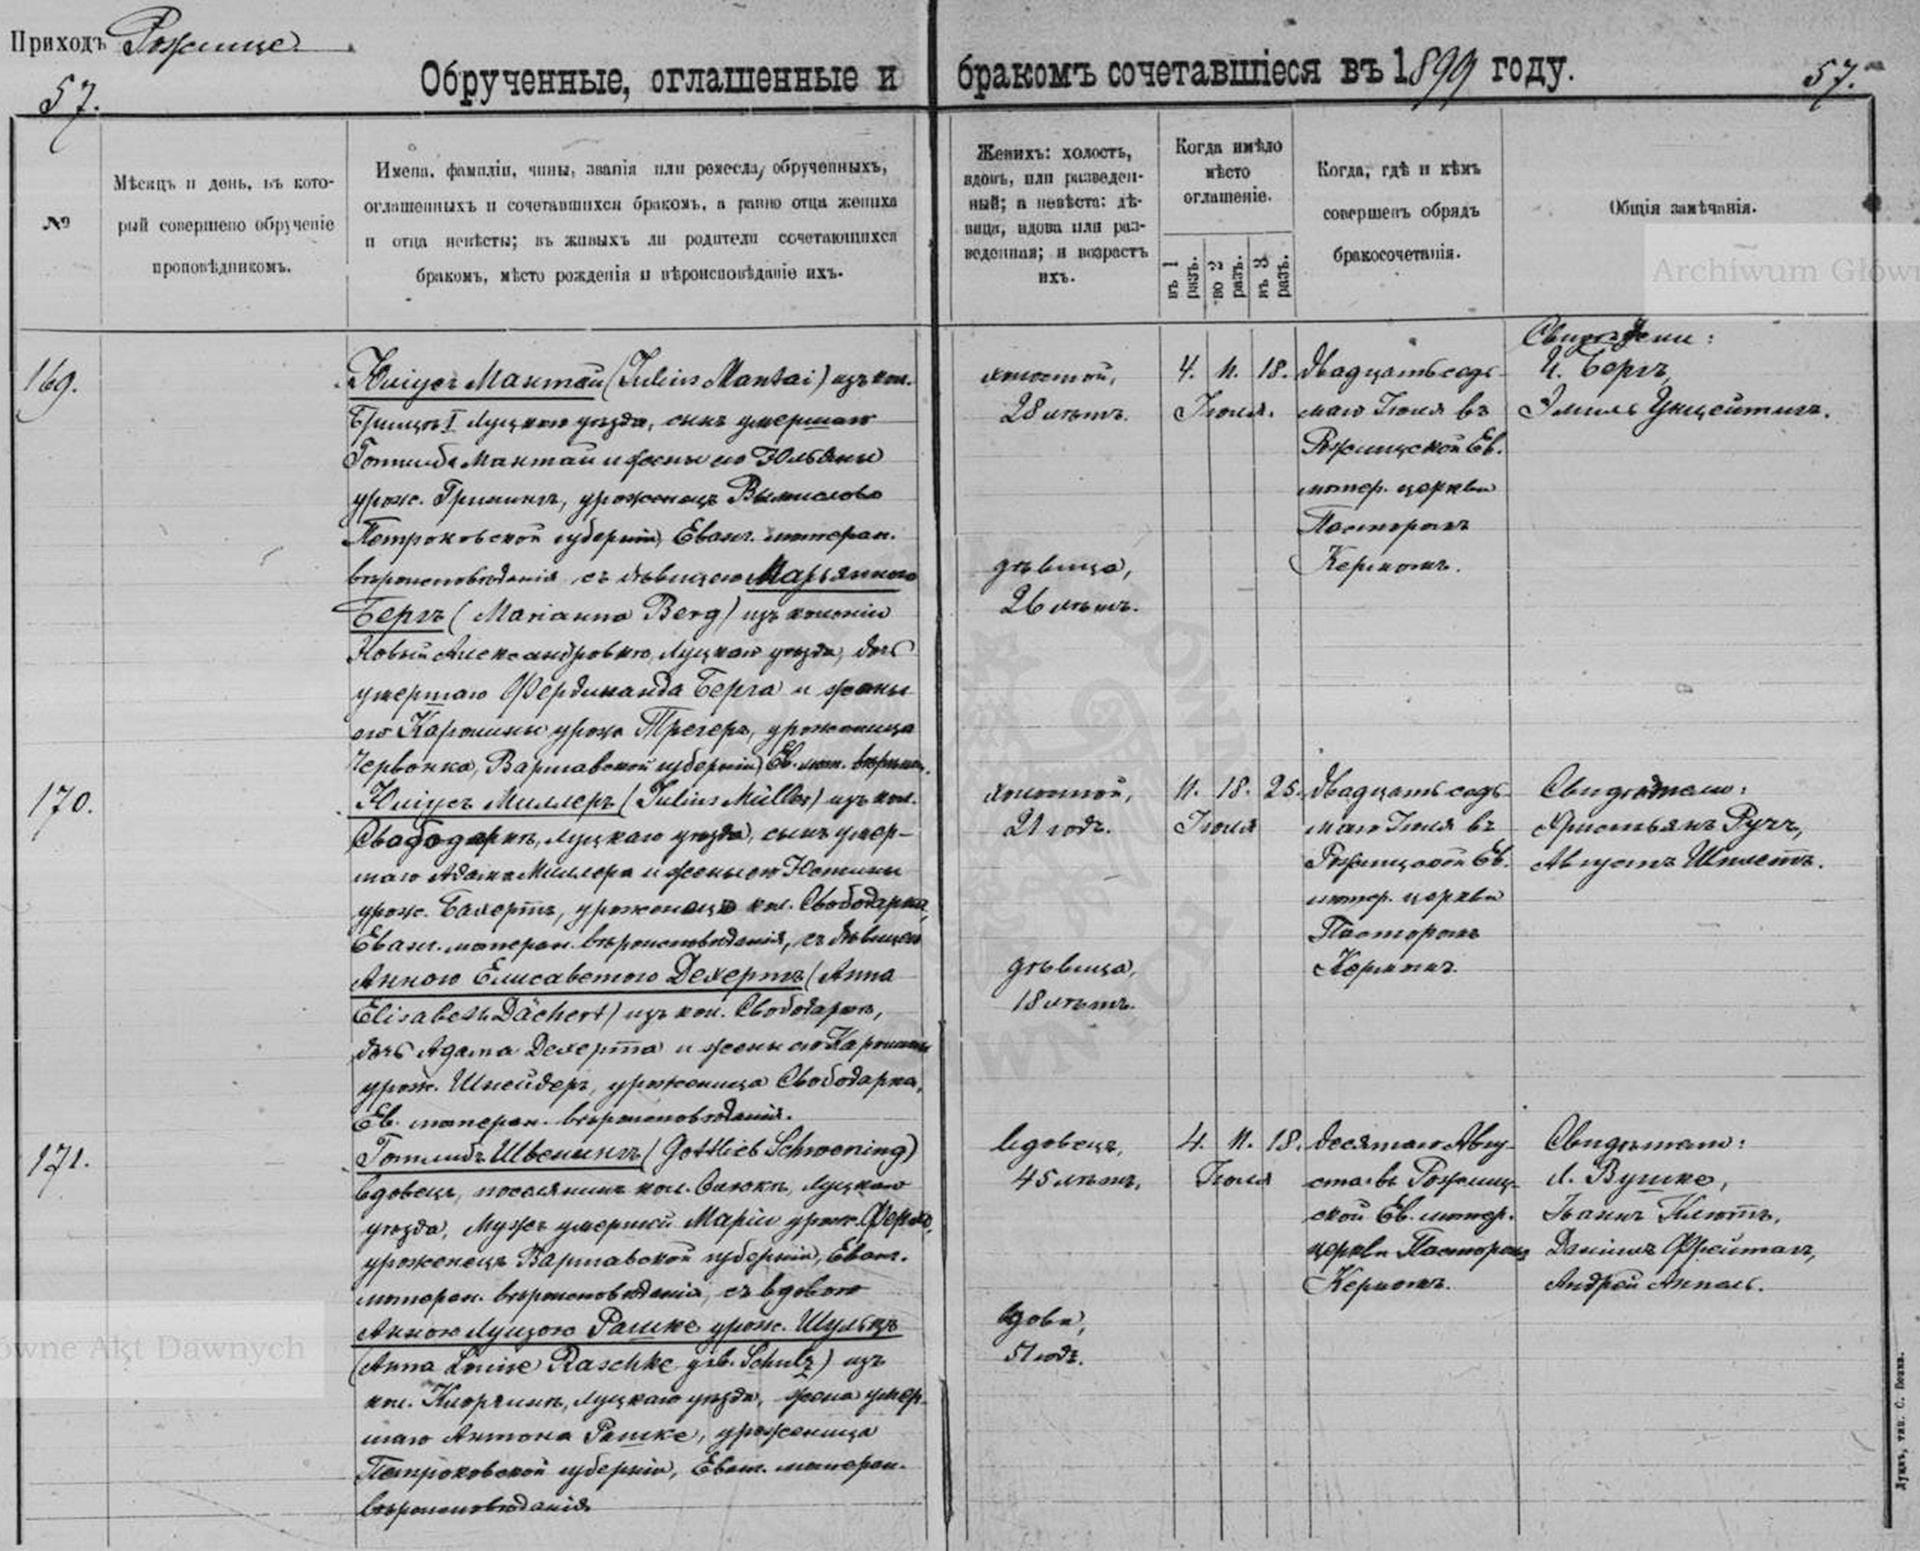 Приходъ Рожище.
57.
Обрученные, оглашенные и бракомъ сочетавшіеся въ 1899 году.
57.
№
Мѣсяцъ и день, въ кото-
рый совершено обрученіе
проповѣдникомъ.
Имена, фамиліи, чины, званія или ремесла, обрученныхъ,
оглашенныхъ и сочетавшихся бракомъ, а равно отца жениха
и отца невѣсты; въ живыхъ ли родители сочетающихся
бракомъ, мѣсто рожденія и вѣроисповѣданіе ихъ.
Женихъ: холостъ,
вдовъ, или разведен-
ный; а невѣста: дѣ-
вица, вдова или раз-
веденная; и возрастъ
ихъ.
Когда имѣло
мѣсто
оглашеніе.
въ 1 разъ.
во 2 разъ.
въ 3 разъ.
Когда, гдѣ и кѣмъ
совершенъ обрядъ
бракосочетанія.
Общія замѣчанія.
Archiwum Główn
169.
Юліусъ Мантай (Julius Mantai) изъ кол.
I Луцкаго уѣзда, сынъ умершаго
Готлиба Мантай и жены его Юльяны
урож. уроженецъ
Петроковской губерніи, Еванг. лютеран.
вѣроисповѣданія съ дѣвицею Марьянною
Бергъ (Marianna Berg) изъ колоніи
Луцкаго уѣзда, дочь
умершаго Фердинанда Берга и жены
его Каролины урож. Трегеръ, уроженица
Червонка, Варшавской губерніи, Ев. лют. вѣроисп.
холостой,
28 лѣтъ.
дѣвица,
26 лѣтъ.
4. 11. 18.
Іюля.
Двадцать седь-
маго Іюля въ
Рожищской Ев.
лютер. церкви
Пасторомъ
Керномъ.
Свидѣтели:
И. Бергъ,
Эмиль
170.
Юліусъ Миллеръ (Julius Müller) изъ кол.
Свободарка, Луцкаго уѣзда, сынъ умер-
шаго Адама Миллера и жены его Юстины
урож. уроженецъ кол. Свободарка,
Еванг. лютеран. вѣроисповѣданія, съ дѣвицею
Анною Елисаветою Дехертъ (Anna
Elisabeth Dächert) изъ кол. Свободарка,
дочь Адама Дехерта и жены его Каролины
урож. Шнейдеръ, уроженица Свободарка,
Ев. лютеран. вѣроисповѣданія.
холостой,
21 годъ.
дѣвица,
18 лѣтъ.
11. 18. 25.
Іюля
Двадцать седь-
маго Іюля въ
Рожищской Ев.
лютер. церкви
Пасторомъ
Керномъ.
Свидѣтели:
Христьянъ
Августъ
171.
Готлибъ Швенингъ (Gottlieb Schwening)
вдовецъ, поселянинъ кол. Луцкаго
уѣзда, мужъ умершей Маріи урож.
уроженецъ Варшавской губерніи, Еванг.
лютеран. вѣроисповѣданія, съ вдовою
Анною Луизою Рашке урож. Шульцъ
(Anna Louise Raschke geb. Schulz) изъ
кол. Луцкаго уѣзда, жена умер-
шаго Антона Рашке, уроженица
Петроковской губерніи, Еванг. лютеран.
вѣроисповѣданія
вдовецъ,
45 лѣтъ,
вдова,
51 годъ.
4. 11. 18.
Іюля
Десятаго Авгу-
ста въ Рожищ-
ской Ев. лютер.
церкви Пасторомъ
Керномъ.
Свидѣтели:
Л. Вушке,
Даніилъ Фрейтагъ,
Андрей
ówne Akt Dawnych
Луцкъ, тип. С. Бокка.